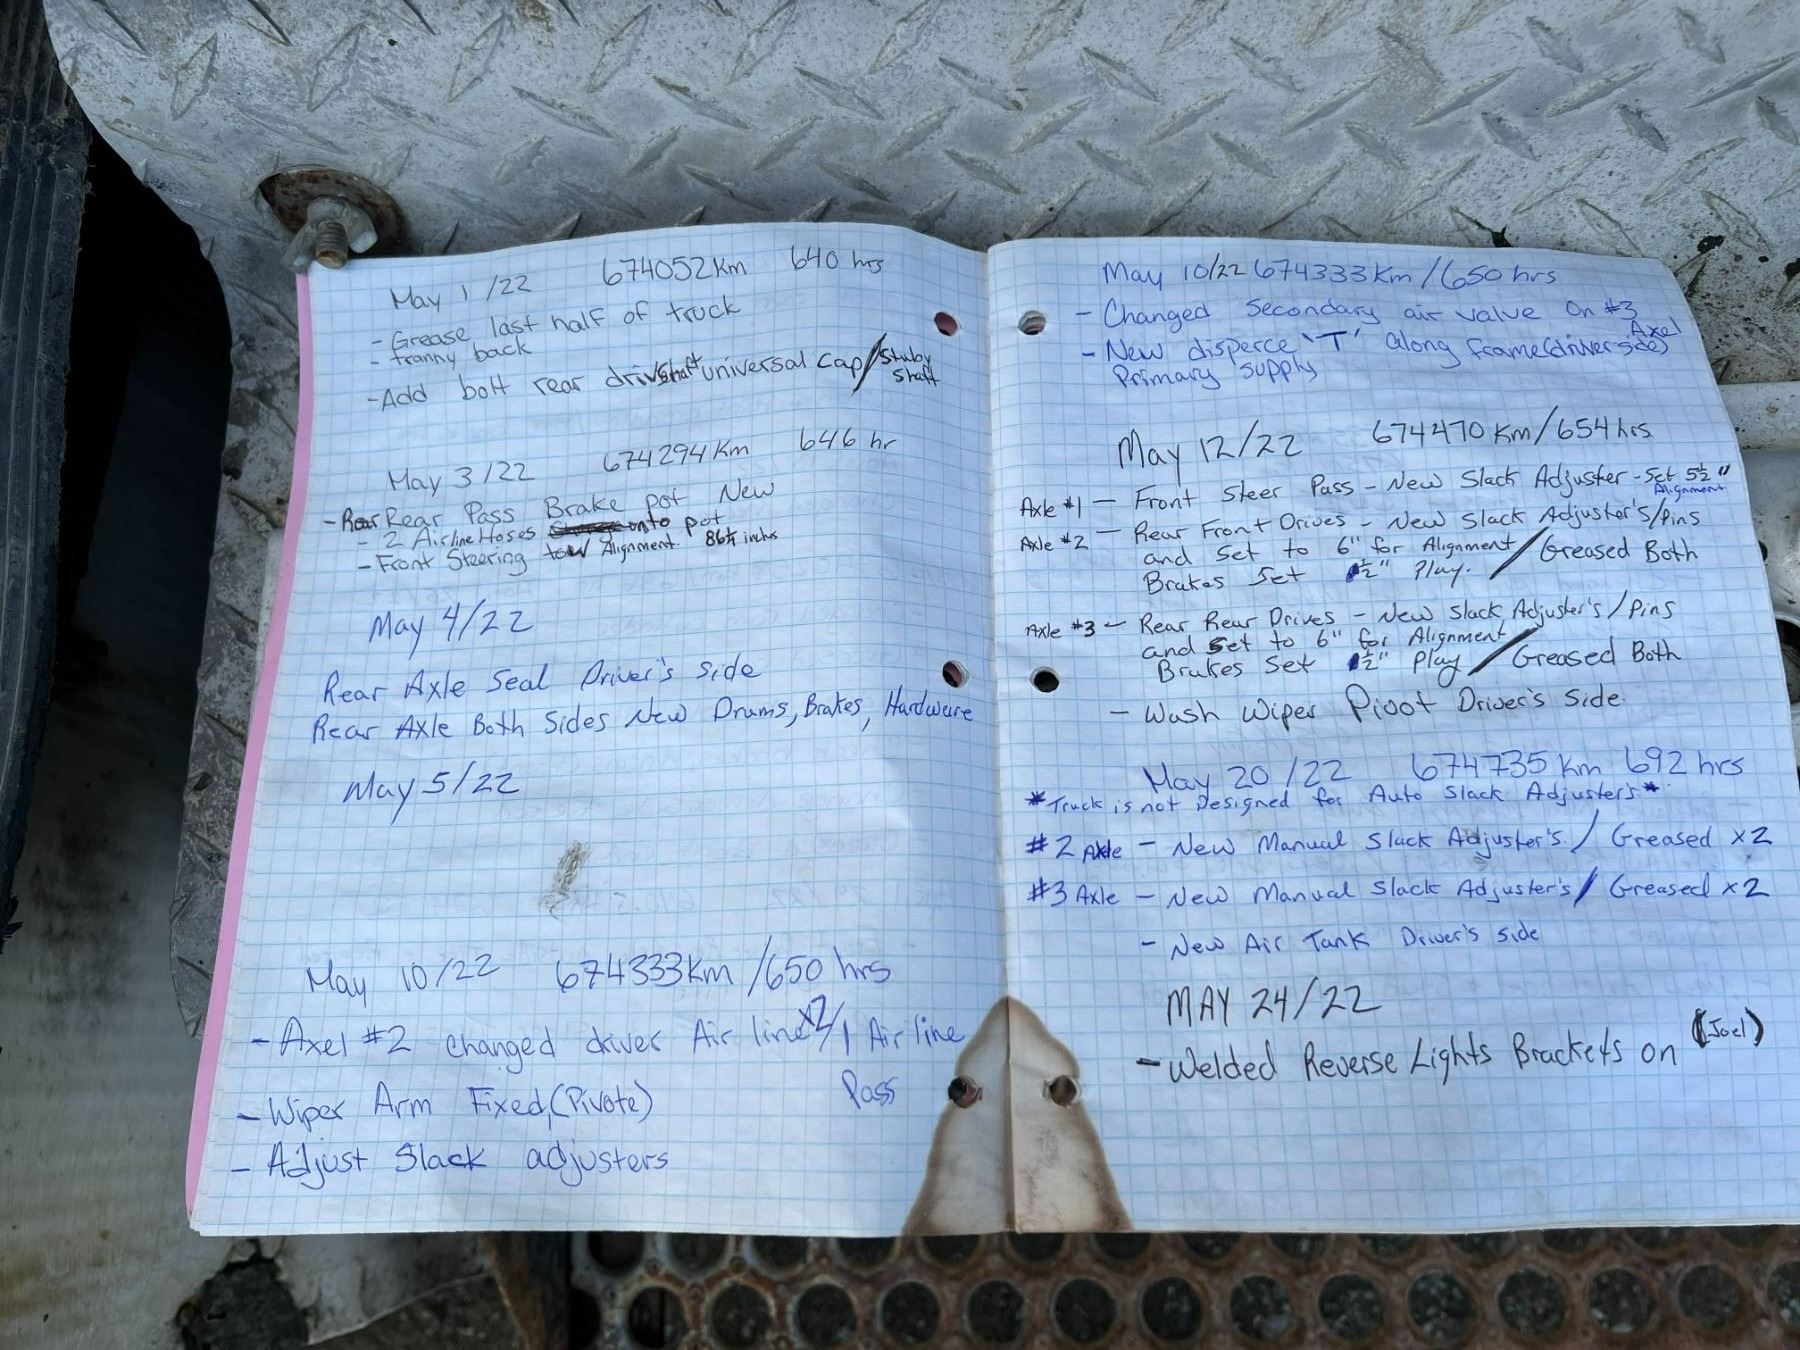 May 1 /22 674052Km 640 hrs
- Grease last half of truck
- tranny back
- Add bolt rear driveshaft universal cap/Stuby
shaft
May 3 /22 674294Km 646 hr
- Rear Rear Pass Brake pot New
- 2 Airline Hoses onto pot
- Front Steering tow Alignment. 86¼ inches
May 4/22
Rear Axle Seal Driver's Side
Rear Axle Both Sides New Drums, Brakes, Hardware
May 5/22
May 10/22 674333Km /650 hrs
- Axel #2 changed driver Air line x2/1 Air line
Pass
- Wiper Arm Fixed,(Pivote)
- Adjust Slack adjusters
May 10/22 674333Km /650 hrs
- Changed Secondary air valve On #3
Axel
- New disperce "T" along frame(driver side)
Primary Supply
May 12/22 674470 Km/654 hrs
Axle #1 - Front Steer Pass - New Slack Adjuster - Set 5½"
Alignment
Axle #2 - Rear Front Drives - New Slack Adjuster's/Pins
and Set to 6" for Alignment / Greased Both
Brakes Set ½" Play.
Axle #3 - Rear Rear Drives - New Slack Adjuster's/Pins
and Set to 6" for Alignment
Brakes Set ½" Play / Greased Both
- Wash Wiper Pivot Driver's Side.
May 20 /22 674735 Km 692 hrs
*Truck is not Designed for Auto Slack Adjuster's*
#2 Axle - New Manual Slack Adjuster's / Greased x2
#3 Axle - New Manual Slack Adjuster's / Greased x2
- New Air Tank Driver's Side
MAY 24/22
- Welded Reverse Lights Brackets on (Joel)